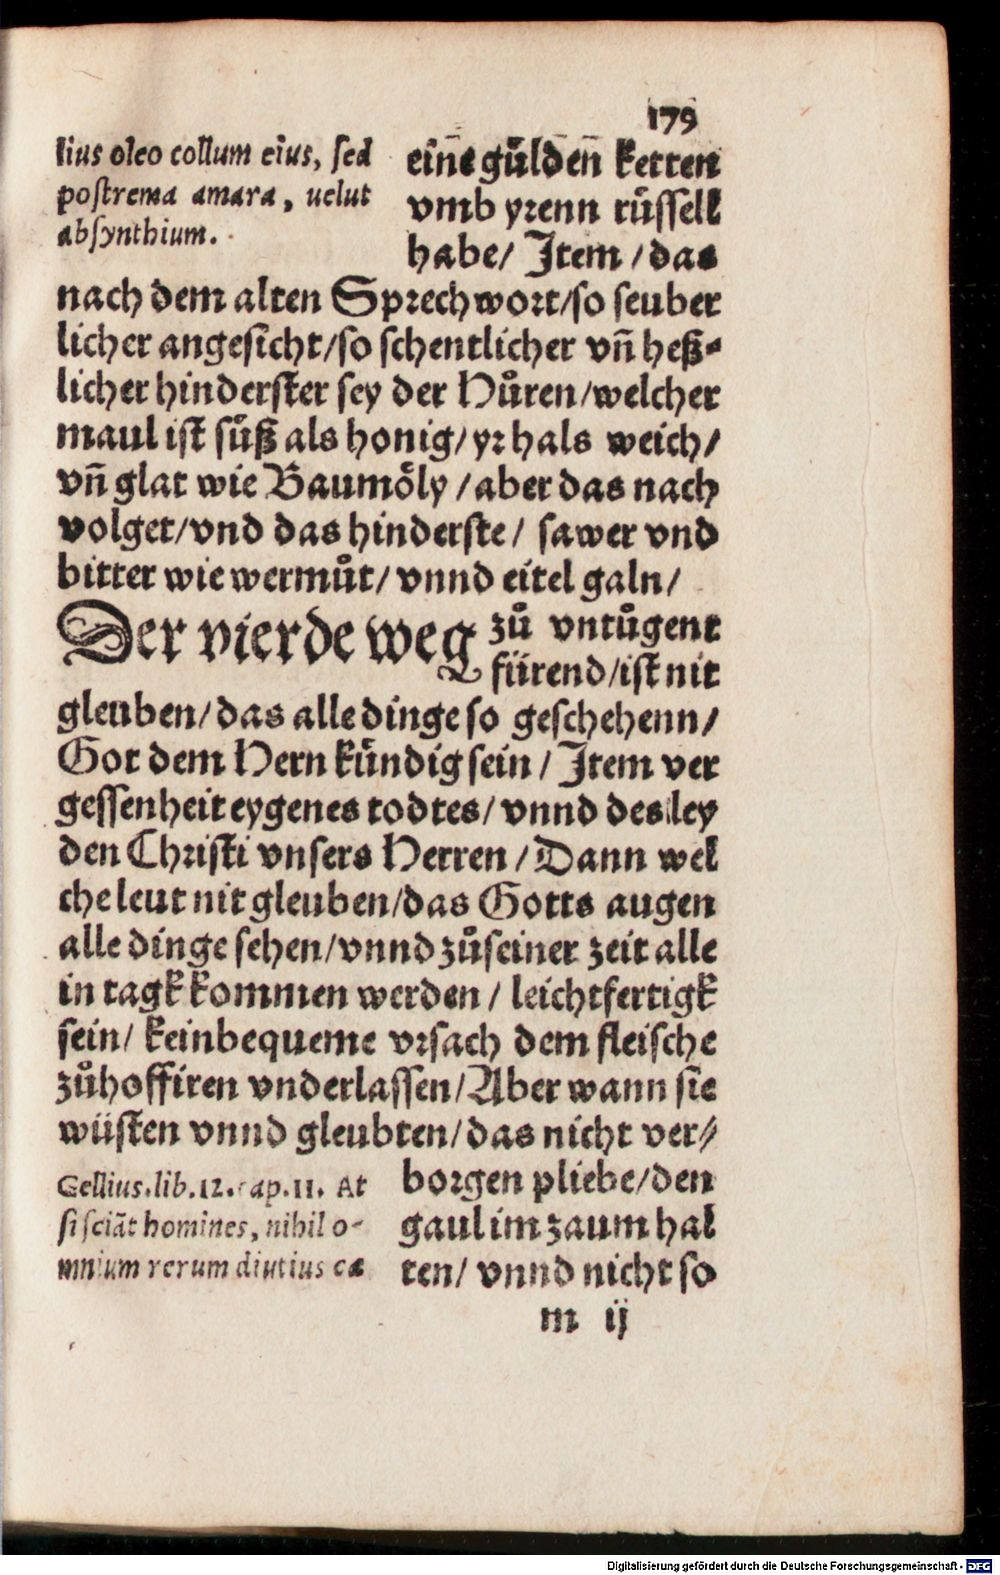 179
lius oleo collum eius, sed
postrema amara, uelut
absynthium.
eine̅ gůlden̅ ketten
vmb yrenn růssell
habe/ Item /das
nach dem alten Sprechwort/so seuber
licher angesicht/so schentlicher vn̅ heß⸗
licher hinderster sey der Hůren/welcher
maul ist sůß als honig/ yr hals weich/
vn̅ glat wie Baumoͤly /aber das nach
volget/vnd das hinderste/ sawer vnd
bitter wie wermůt/ vnnd eitel galn/
Der vierde weg zů vntůgent
fürend/ist nit
gleuben/das alle dinge so geschehenn/
Got dem Hern kündig sein/ Item ver
gessenheit eygenes todtes/ vnnd des ley
den Christi vnsers Herren /Dann wel
che leut nit gleuben/das Gotts augen
alle dinge sehen/vnnd zůseiner zeit alle
in tagk kommen werden/ leichtfertigk
sein/ kein bequeme vrsach dem fleische
zůhoffiren vnderlassen/Aber wann sie
wüsten vnnd gleubten/das nicht ver⸗
Gellius.lib.12.cap.11. At
si sciãt homines, nihil o-
mnium rerum diutius ca
borgen pliebe/den
gaul im zaum hal
ten/ vnnd nicht so
m ij
Digitalisierung gefördert durch die Deutsche Forschungsgemeinschaft - DFG